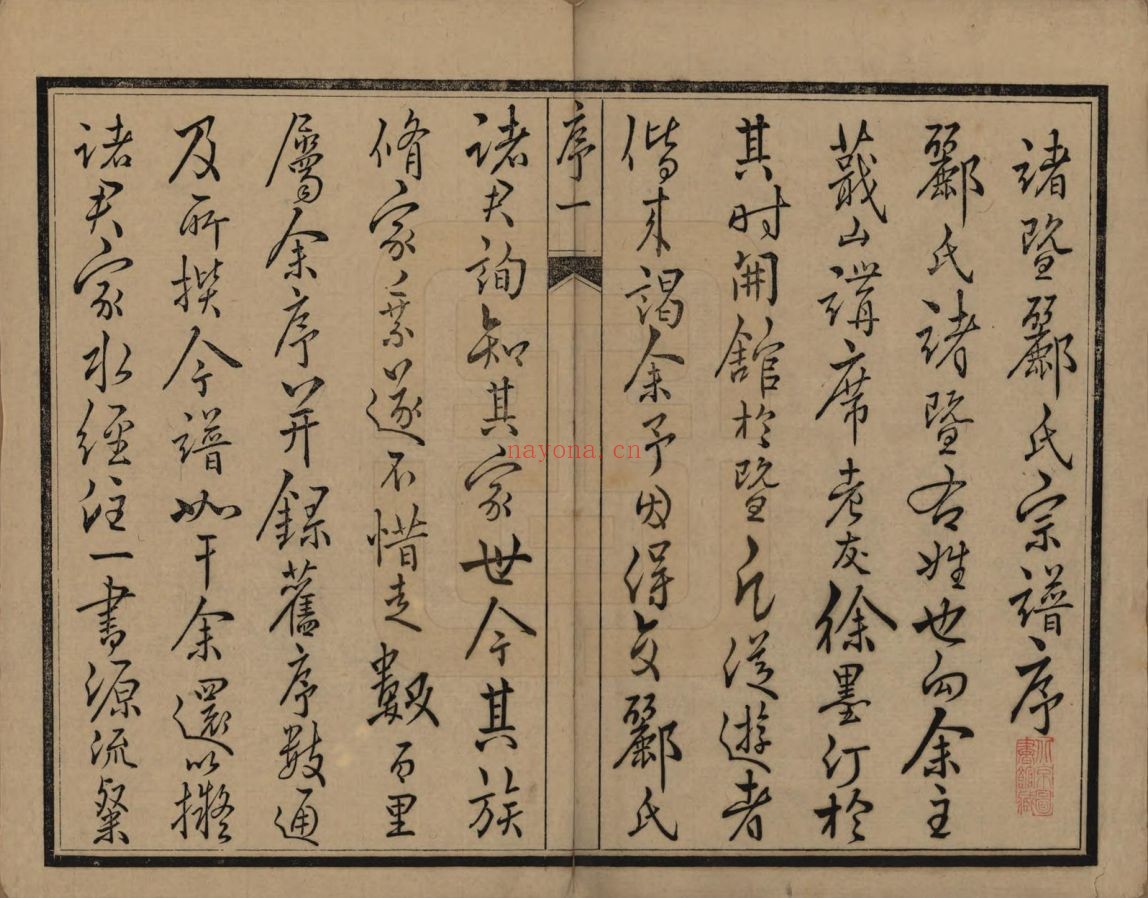 諸暨酈氏宗譜序
酈氏諸暨右姓也向余主
蕺山講席老友徐墨汀於
其時開館於暨凡從遊者
偕來謁余予因得交酈氏
序一
諸君詢知其家世今其族
脩家乘遂不惜走數百里
屬余序并錄舊序數通
及所撰今譜如干余還以擬
諸君家水經注一書源流粲
nayona.cn